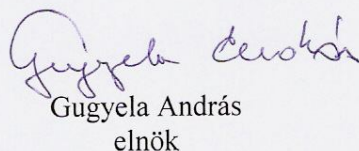 Gugyela András
Gugyela András
elnök